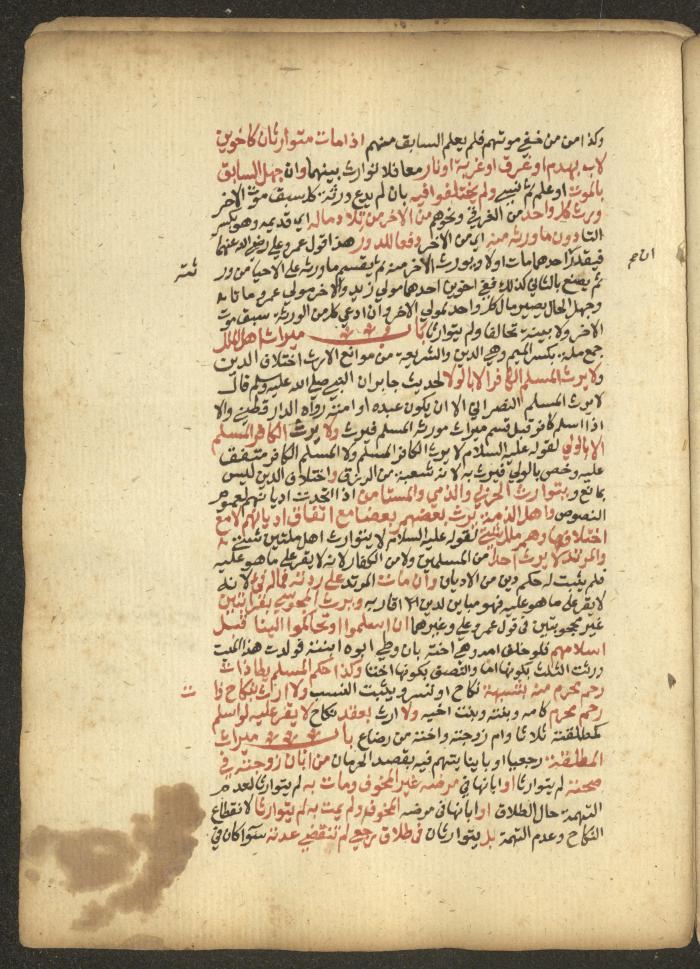 وكذا من من خفي موتهم فلم يعلم السابق منهم اذا مات متوارثان كاخوين
لاب بهدم او غرق او غربة او نار معا فلا توارث بينهما وان جهل السابق
بالموت او علم ثم نسي ولم يختلفوا فيه بان لم يدع ورثة كل سبق موت الاخر
ورث كل واحد من الغرقى ونحوهم من الاخر من تلاد ماله اي قديمه وهو بكسر
التا دون ما ورثه منه اي من الاخر دفعا للدور هذا قول عمر وعلي رضي الله عنهما
فيقدر احدهما مات اولا ويورث الاخر منه ثم يقسم ما ورثه على الاحيا من ور
ثته
ثم يصنع بالثاني كذلك ففي اخوين احدهما مولي زيد والاخر مولي عمرو ماتا
وجهل الحال يصير مال كل واحد لمولي الاخر وان ادعي كل من الورثة سبق موت
الاخر ولا بينة تحالفا ولم يتوارثا باب ميراث اهل الملل
جمع ملة بكسر الميم وهي الدين والشريعة من موانع الارث اختلاف الدين
ولا يرث المسلم الكافر الا بالولا لحديث جابر ان النبي صلي الله عليه وسلم قال
لا يرث المسلم النصراني الا ان يكون عبده او امته رواه الدارقطني والا
اذا اسلم كافر قبل قسم ميراث مورثه المسلم فيرث ولا يرث الكافر المسلم
الا بالولي لقوله عليه السلام لا يرث الكافر المسلم ولا المسلم الكافر متفق
عليه وخص بالولي فيرث به لانه شعبة من الرق واختلاف الدارين ليس
بمانع و يتوارث الحربي والذمي والمستامن اذا اتحدت اديانهم لعموم
النصوص واهل الذمة يرث بعضهم بعضا مع اتفاق اديانهم لا مع
اختلافها وهم ملل شتي لقوله عليه السلام لا يتوارث اهل ملتين شتي
والمرتد لا يرث احدا من المسلمين ولا من الكفار لانه لا يقر علي ما هو عليه
فلم يثبت له حكم دين من الاديان وان مات المرتد علي ردته فماله فئ لانه
لا يقر علي ما هو عليه فهو مباين لدين اقاربه ويرث المجوسي بقرابتين
غير محجوبتين في قول عمر وعلي وغيرهما ان اسلموا او تحاكموا الينا قبل
اسلامهم فلو خلف امه وهي اخته بان وطي ابوه ابنته فولدت هذا الميت
ورثت الثلث بكونها اما والنصف بكونها اختا وكذا حكم المسلم يطا ذات
رحم محرم منه بشبهة نكاح او تسر ويثبت النسب ولا ارث بنكاح ذا
ت
رحم محرم كامه وبنته وبنت اخيه ولا ارث بعقد نكاح لا يقر عليه لو اسلم
كمطلقته ثلاثا وام زوجته واخته من رضاع باب ميراث
المطلقة رجعيا او باينا يتهم فيه بقصد الحرمان من ابان زوجته في
صحته لم يتوارثا او ابانها في مرضه غير المخوف ومات به لم يتوارثا لعدم
التهمة حال الطلاق او ابانها في مرضه المخوف ولم يمت به لم يتوارثا لانقطاع
النكاح وعدم التهمة بل يتوارثان في طلاق رجعي لم تنقض عدته سوا كان في